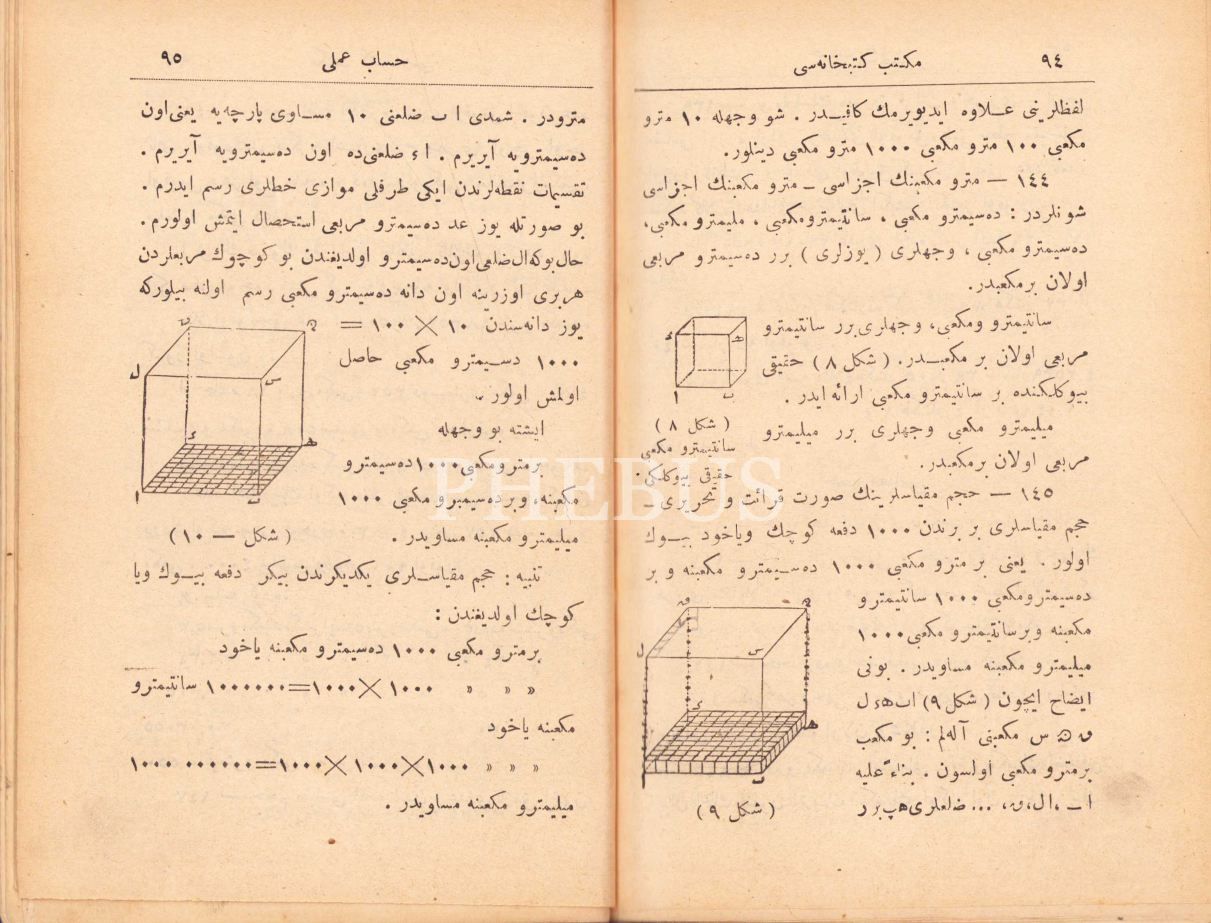 ٩٤
مكتب كتبخانه‌سى
لفظلرینی علاوه ایدیویرمك كافیدر . شو وجهله ١٠ مترو
مكعبی ١٠٠ مترو مكعبی ١٠٠٠ مترو مكعبی دینلور.
١٤٤ — مترو مكعبنك اجزاسی ــ مترو مكعبنك اجزاسی
شونلردر : ده‌سیمترو مكعبی ، سانتیمترومكعبی ، ملیمترو مكعبی،
ده‌سیمترو مكعبی ، وجهلری ( یوزلری ) برر ده‌سیمترو مربعی
اولان برمكعبدر.
سانتیمترو ومكعبی، وجهلری برر سانتیمترو
مربعی اولان بر مكعبدر. ( شكل ٨ ) حقیقی
بیوكلكنده بر سانتیمترو مكعبی ارائه ایدر .
میلیمترو مكعبی وجهلری برر میلیمترو
مربعی اولان برمكعبدر.
ء
ه
ا
ب
( شكل ٨ )
سانتیمترو مكعبی
حقیقی بیوكلكی.
١٤٥ — حجم مقیاسلرینك صورت قرائت و تحریری ــ
حجم مقیاسلری بر برندن ١٠٠٠ دفعه كوچك ویاخود بیوك
اولور . یعنی بر مترو مكعبی ١٠٠٠ ده‌سیمترو مكعبنه و بر
ده‌سیمترومكعبی ١٠٠٠ سانتیمترو
مكعبنه وبرسانتیمترو مكعبی ١٠٠٠
میلیمترو مكعبنه مساویدر . بونی
ایضاح ایچون ( شكل ٩ ) ا ب ه ء ل
س مكعبنی آله‌لم : بو مكعب
برمترو مكعبی اولسون . بناءً علیه
ا ب ، ا ل ، ... ضلعلری هپ برر
ل
س
ء
ه
ا
ب
( شكل ٩ )
حساب عملی
٩٥
مترودر . شمدی ا ب ضلعنی ١٠ مساوی پارچه‌یه یعنی اون
ده‌سیمترویه آیریرم . ا ء ضلعنی ده اون ده‌سیمترویه آیریرم .
تقسیمات نقطه‌لرندن ایكی طرفلی موازی خطلری رسم ایدرم .
بو صورتله یوز عدد ده‌سیمترو مربعی استحصال ایتمش اولورم .
حال بوكه ا ل ضلعی اون ده‌سیمترو اولدیغندن بو كوچوك مربعلردن
هربری اوزرینه اون دانه ده‌سیمترو مكعبی رسم اولنه بیلورکه
یوز دانه‌سندن ١٠ × ١٠٠ =
١٠٠٠ دسیمترو مكعبی حاصل
اولمش اولور .
ل
س
ء
ه
ا
ب
ایشته بو وجهله
برمترومكعبی ١٠٠٠ ده‌سیمترو
مكعبنه، وبرده‌سیمترو مكعبی ١٠٠٠
میلیمترو مكعبنه مساویدر .
( شكل — ١٠ )
تنبیه : حجم مقیاسلری یكدیكرندن بیكر دفعه بیوك ویا
كوچك اولدیغندن :
برمترو مكعبی ١٠٠٠ ده‌سیمترو مكعبنه یاخود
» » » ١٠٠٠×١٠٠٠=١٠٠٠٠٠٠ سانتیمترو
مكعبنه یاخود
» » » ١٠٠٠×١٠٠٠×١٠٠٠=١٠٠٠ ٠٠٠٠٠٠
میلیمترو مكعبنه مساویدر .
PHEBUS